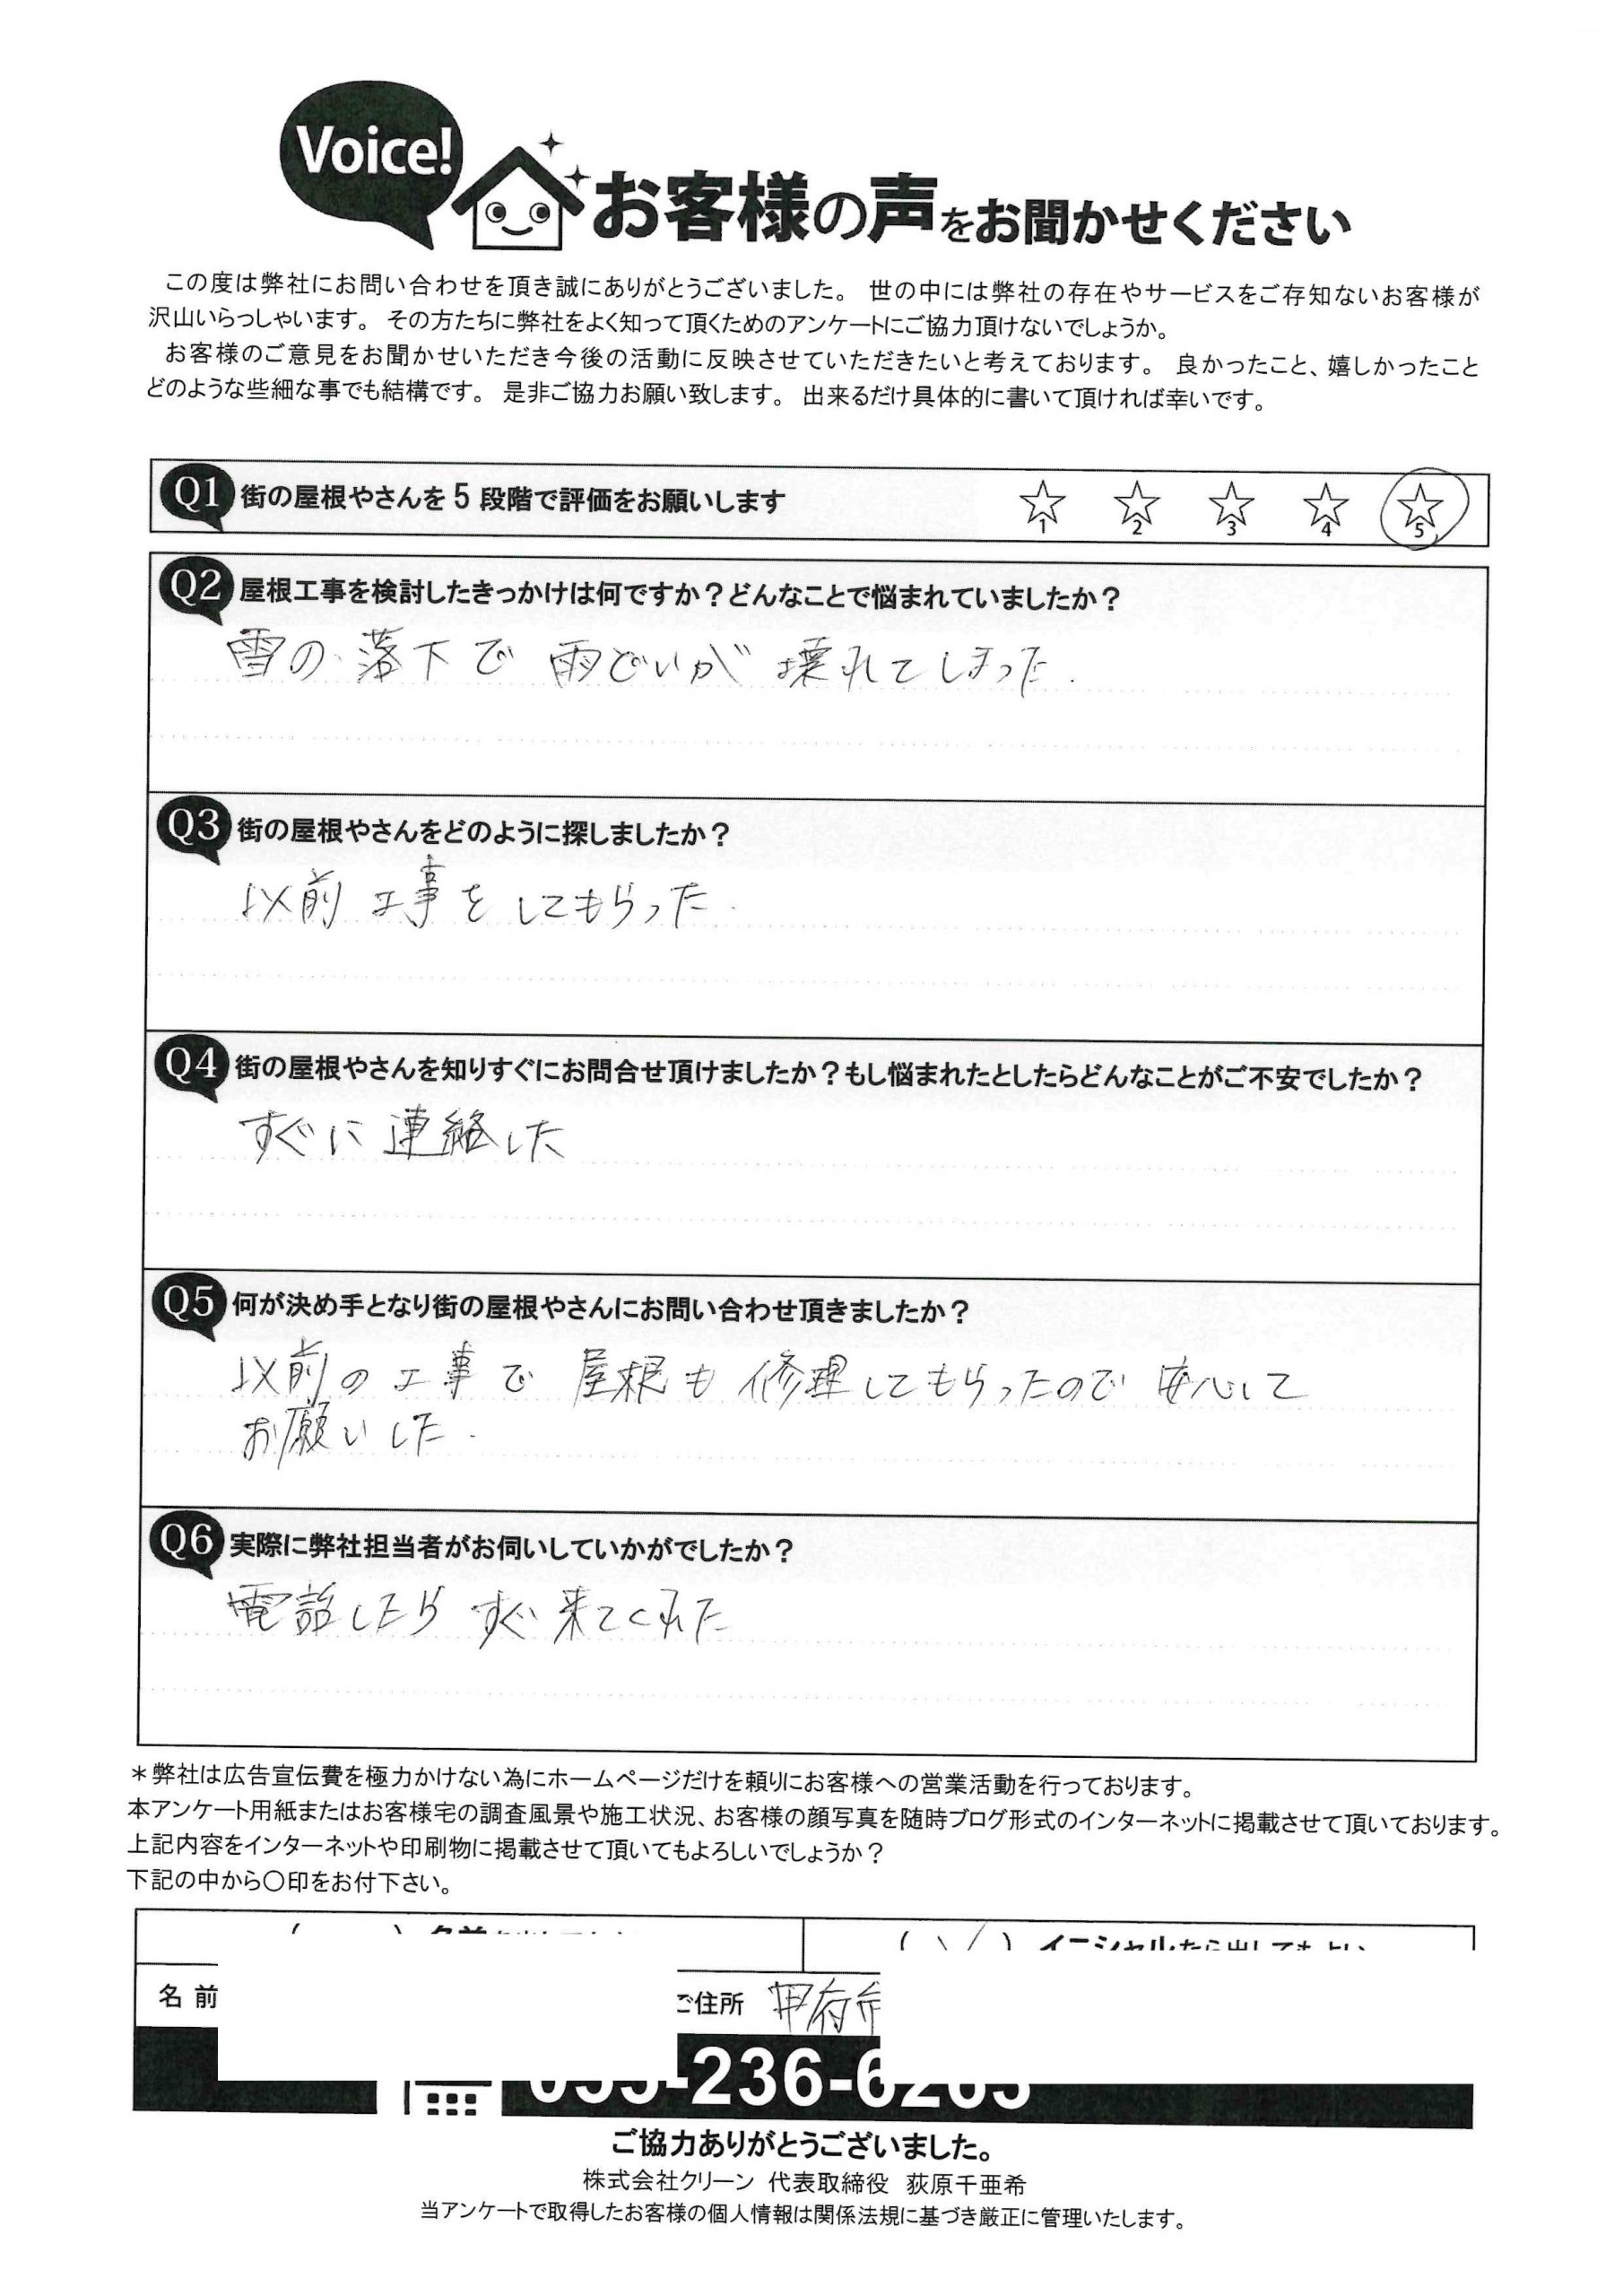 Voice!
お客様の声をお聞かせください
この度は弊社にお問い合わせを頂き誠にありがとうございました。 世の中には弊社の存在やサービスをご存知ないお客様が
沢山いらっしゃいます。 その方たちに弊社をよく知って頂くためのアンケートにご協力頂けないでしょうか。
お客様のご意見をお聞かせいただき今後の活動に反映させていただきたいと考えております。 良かったこと、嬉しかったこと
どのような些細な事でも結構です。 是非ご協力お願い致します。 出来るだけ具体的に書いて頂ければ幸いです。
Q1 街の屋根やさんを 5 段階で評価をお願いします ☆1 ☆2 ☆3 ☆4 ☆5
Q2 屋根工事を検討したきっかけは何ですか？どんなことで悩まれていましたか？
雪の落下で 雨どいが 壊れてしまった.
Q3 街の屋根やさんをどのように探しましたか？
以前 工事を してもらった.
Q4 街の屋根やさんを知りすぐにお問合せ頂けましたか？もし悩まれたとしたらどんなことがご不安でしたか？
すぐに 連絡した
Q5 何が決め手となり街の屋根やさんにお問い合わせ頂きましたか？
以前の工事で 屋根も 修理してもらったので 安心して
お願いした.
Q6 実際に弊社担当者がお伺いしていかがでしたか？
電話したら すぐ 来てくれた
＊弊社は広告宣伝費を極力かけない為にホームページだけを頼りにお客様への営業活動を行っております。
本アンケート用紙またはお客様宅の調査風景や施工状況、お客様の顔写真を随時ブログ形式のインターネットに掲載させて頂いております。
上記内容をインターネットや印刷物に掲載させて頂いてもよろしいでしょうか？
下記の中から〇印をお付下さい。
イニシャルなら出してもよい
名 前
ご住所 甲府市
-236-6
ご協力ありがとうございました。
株式会社クリーン 代表取締役 荻原千亜希
当アンケートで取得したお客様の個人情報は関係法規に基づき厳正に管理いたします。